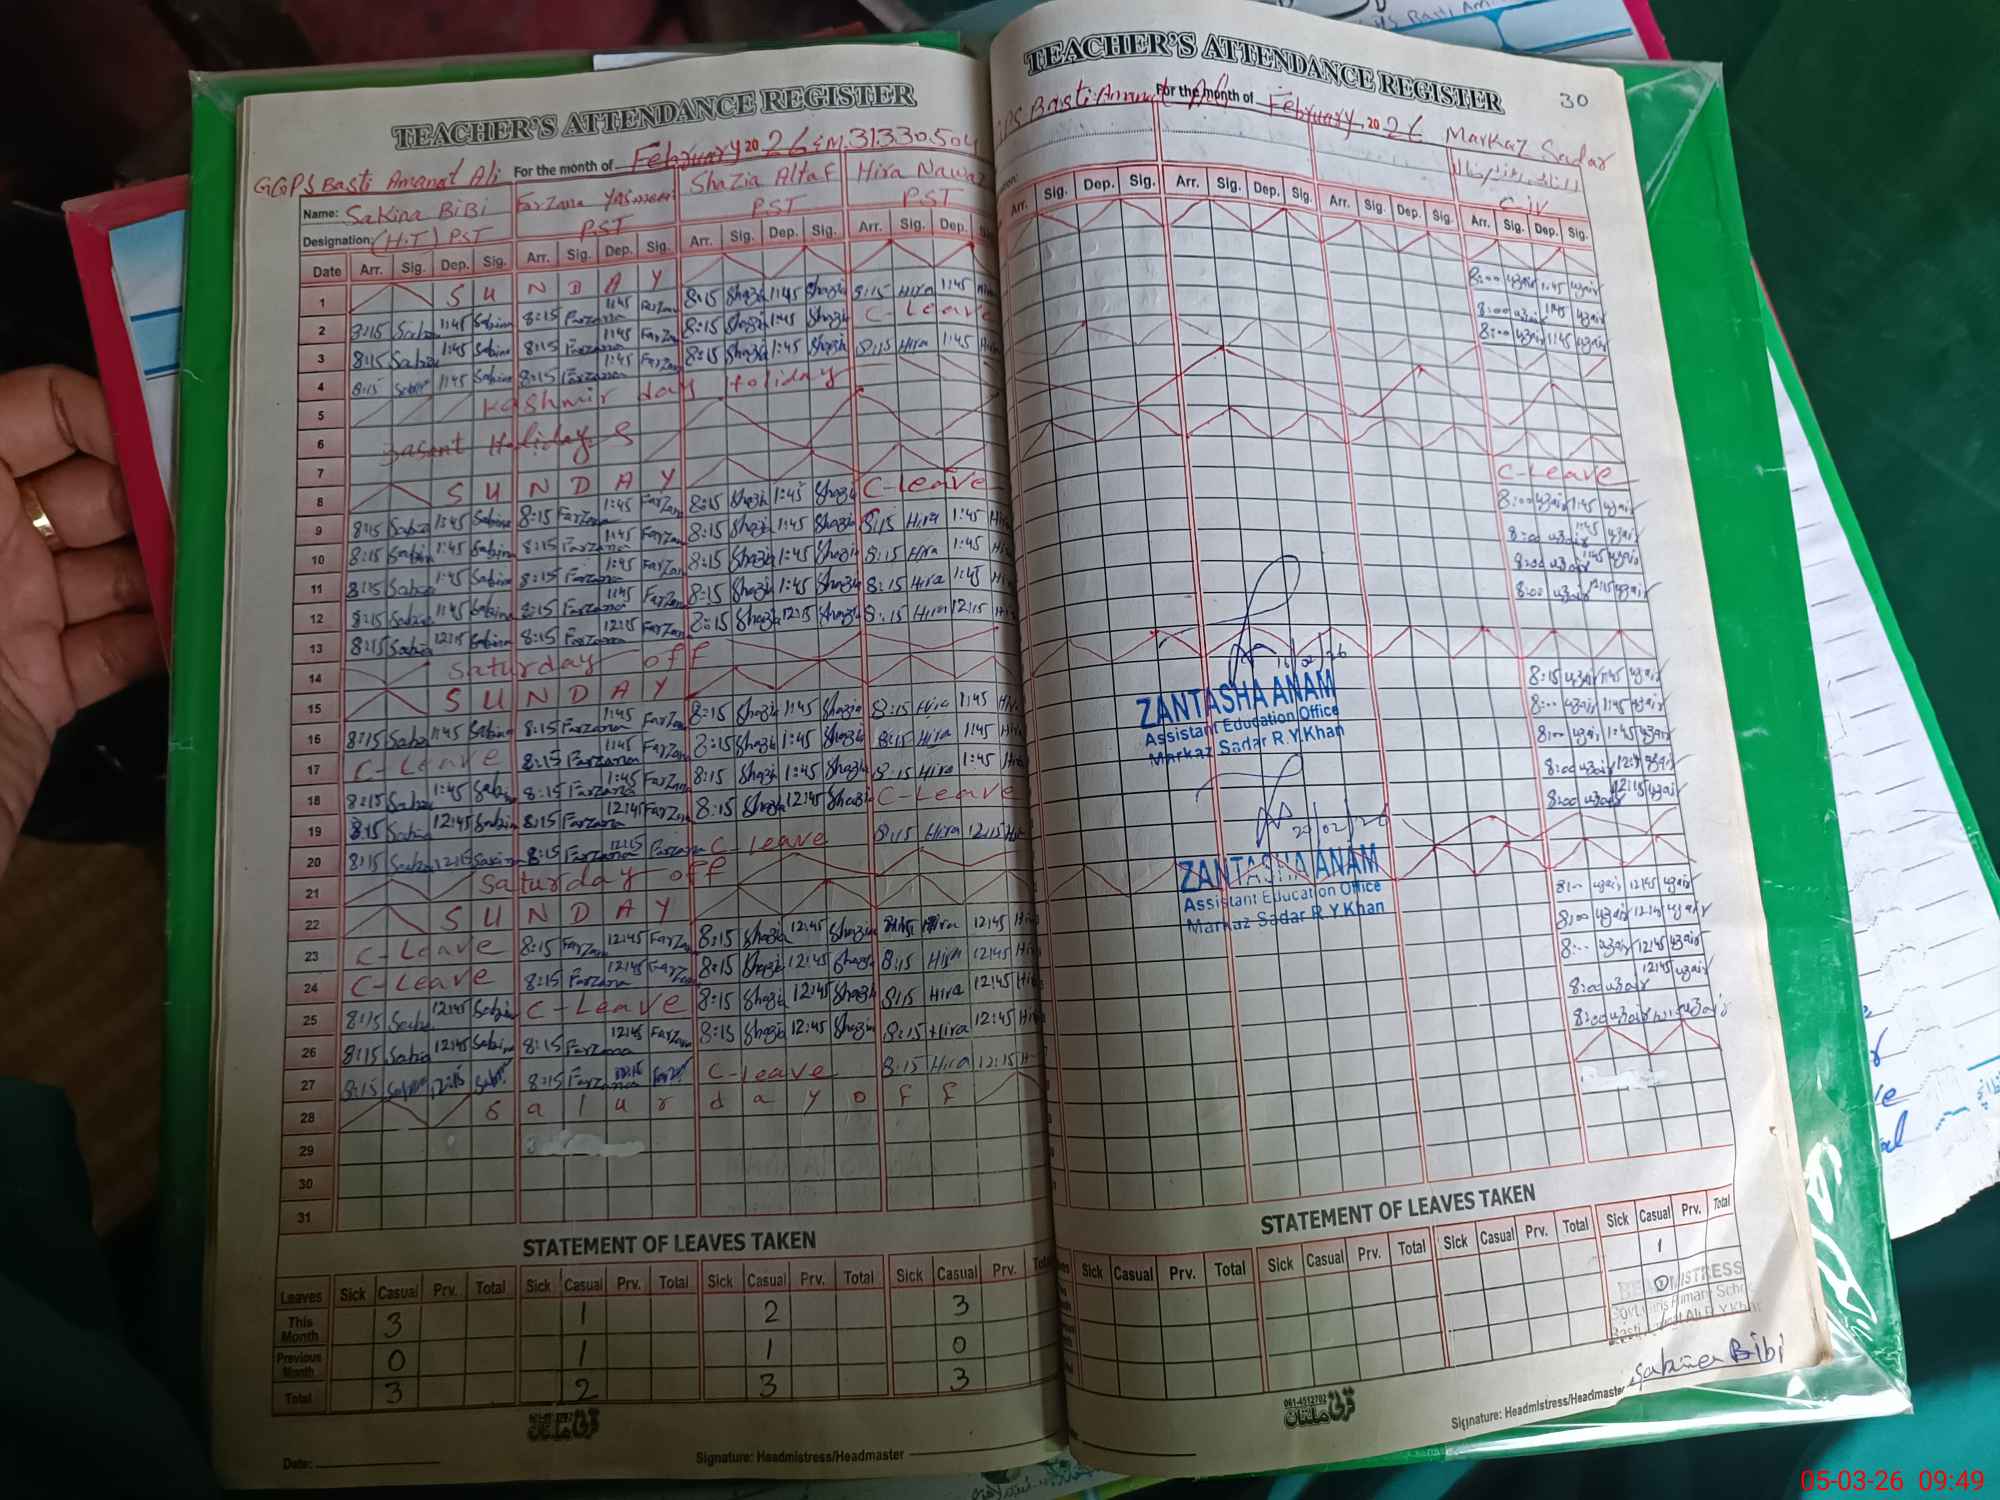 TEACHER'S ATTENDANCE REGISTER
GGPS Basti Amanat Ali For the month of February 2026 EM. 31330504
Name: Sakina BiBi Farzana Yasmeen Shazia Altaf Hira Nawaz
Designation: (H.T) PST PST PST PST
Date Arr. Sig. Dep. Sig. Arr. Sig. Dep. Sig. Arr. Sig. Dep. Sig. Arr. Sig. Dep.
1 SUNDAY
2 8:15 1:45 Sabina 8:15 Farzana 1:45 8:15 Shazia 1:45 Shazia 8:15 Hira 1:45
3 8:15 1:45 Sabina 8:15 Farzana 1:45 8:15 Shazia 1:45 Shazia C-Leave
4 8:15 1:45 Sabina 8:15 Farzana 1:45 8:15 Shazia 1:45 Shazia 8:15 Hira 1:45 Hira
5 Kashmir day Holiday
6 Basant Holidays
7
8 SUNDAY
9 8:15 1:45 Sabina 8:15 Farzana 1:45 8:15 Shazia 1:45 Shazia C-Leave
10 8:15 1:45 Sabina 8:15 Farzana 1:45 8:15 Shazia 1:45 Shazia 8:15 Hira 1:45 Hira
11 8:15 1:45 Sabina 8:15 Farzana 1:45 8:15 Shazia 1:45 Shazia 8:15 Hira 1:45
12 8:15 1:45 Sabina 8:15 Farzana 1:45 8:15 Shazia 1:45 Shazia 8:15 Hira 1:45
13 8:15 12:15 Sabina 8:15 Farzana 12:15 8:15 Shazia 12:15 Shazia 8:15 Hira 12:15
14 Saturday off
15 SUNDAY
16 8:15 1:45 Sabina 8:15 Farzana 1:45 8:15 Shazia 1:45 Shazia 8:15 Hira 1:45
17 C-Leave 8:15 Farzana 1:45 8:15 Shazia 1:45 Shazia 8:15 Hira 1:45
18 8:15 1:45 8:15 Farzana 1:45 8:15 Shazia 1:45 Shazia 8:15 Hira 1:45
19 8:15 12:45 Sabina 8:15 Farzana 12:45 8:15 Shazia 12:45 Shazia C-Leave
20 8:15 12:15 8:15 Farzana 12:15 Farzana C-Leave 8:15 Hira 12:15
21 Saturday off
22 SUNDAY
23 C-Leave 8:15 Farzana 12:45 8:15 Shazia 12:45 Shazia Hira 12:45
24 C-Leave 8:15 Farzana 12:45 8:15 Shazia 12:45 Shazia 8:15 Hira 12:45
25 8:15 12:45 Sabina C-Leave 8:15 Shazia 12:45 Shazia 8:15 Hira 12:45
26 8:15 12:45 Sabina 8:15 Farzana 12:45 8:15 Shazia 12:45 Shazia 8:15 Hira 12:45
27 8:15 12:15 8:15 Farzana 12:15 C-Leave 8:15 Hira 12:15
28 Saturday OFF
29
30
31
STATEMENT OF LEAVES TAKEN
Leaves Sick Casual Prv. Total Sick Casual Prv. Total Sick Casual Prv. Total Sick Casual Prv.
This Month 3 1 2 3
Previous Month 0 1 1 0
Total 3 2 3 3
Date:
Signature: Headmistress/Headmaster
TEACHER'S ATTENDANCE REGISTER 30
Basti Amanat Ali For the month of February 2026 Markaz Sadar
C-iv
Arr. Sig. Dep. Sig. Arr. Sig. Dep. Sig. Arr. Sig. Dep. Sig. Arr. Sig. Dep. Sig.
8:00 uzair 1:45 uzair
8:00 uzair 1:45 uzair
8:00 uzair 1:45 uzair
C-Leave
8:00 uzair 1:45 uzair
8:00 uzair 1:45 uzair
8:00 uzair 1:45 uzair
8:00 uzair 12:15 uzair
16/02/26
ZANTASHA ANAM
Assistant Education Office
Markaz Sadar R.Y.Khan
8:15 uzair 1:45 uzair
8:00 uzair 1:45 uzair
8:00 uzair 1:45 uzair
8:00 uzair uzair
8:00 uzair 12:15 uzair
ZANTASHA ANAM
Assistant Education Office
Markaz Sadar R.Y.Khan
8:00 uzair 12:45 uzair
8:00 uzair 12:45 uzair
8:00 uzair 12:45 uzair
8:00 uzair 12:45 uzair
8:00 uzair uzair
STATEMENT OF LEAVES TAKEN
Sick Casual Prv. Total Sick Casual Prv. Total Sick Casual Prv. Total Sick Casual Prv. Total
1
0
Sabina Bibi
061-4512702
Signature: Headmistress/Headmaster
05-03-26 09:49